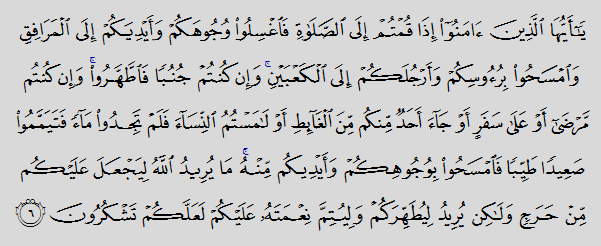 يَـٰٓأَيُّهَا ٱلَّذِينَ ءَامَنُوٓا۟ إِذَا قُمْتُمْ إِلَى ٱلصَّلَوٰةِ فَٱغْسِلُوا۟ وُجُوهَكُمْ وَأَيْدِيَكُمْ إِلَى ٱلْمَرَافِقِ
وَٱمْسَحُوا۟ بِرُءُوسِكُمْ وَأَرْجُلَكُمْ إِلَى ٱلْكَعْبَيْنِ ۚ وَإِن كُنتُمْ جُنُبًا فَٱطَّهَّرُوا۟ ۚ وَإِن كُنتُم
مَّرْضَىٰٓ أَوْ عَلَىٰ سَفَرٍ أَوْ جَآءَ أَحَدٌ مِّنكُم مِّنَ ٱلْغَآئِطِ أَوْ لَـٰمَسْتُمُ ٱلنِّسَآءَ فَلَمْ تَجِدُوا۟ مَآءً فَتَيَمَّمُوا۟
صَعِيدًا طَيِّبًا فَٱمْسَحُوا۟ بِوُجُوهِكُمْ وَأَيْدِيكُم مِّنْهُ ۚ مَا يُرِيدُ ٱللَّهُ لِيَجْعَلَ عَلَيْكُم
مِّنْ حَرَجٍ وَلَـٰكِن يُرِيدُ لِيُطَهِّرَكُمْ وَلِيُتِمَّ نِعْمَتَهُۥ عَلَيْكُمْ لَعَلَّكُمْ تَشْكُرُونَ ٦